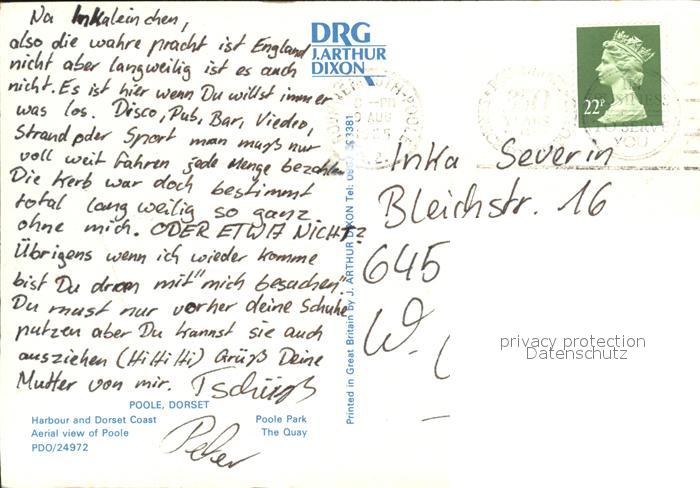 Na Inkaleinchen,
also die wahre pracht ist England
nicht aber langweilig ist es auch
nicht. Es ist hier wenn Du willst immer
was los. Disco, Pub, Bar, Viedeo,
Strand oder Sport man muß nur
voll weit fahren jede Menge bezahlen
Die Kerb war doch bestimmt
total langweilig so ganz
ohne mich. ODER ETWA NICHT?
Übrigens wenn ich wieder komme
bist Du dran mit "mich besuchen".
Du must nur vorher deine Schuhe
putzen aber Du kannst sie auch
ausziehen (Hi Hi Hi) Grüß Deine
Mutter von mir. Tschüß
Peter
POOLE, DORSET
Harbour and Dorset Coast Poole Park
Aerial view of Poole The Quay
PDO/24972
DRG
J.ARTHUR
DIXON
Printed in Great Britain by J. ARTHUR DIXON Tel: 383381
22P
AUG
YOU
Inka Severin
Bleichstr. 16
645
W.
privacy protection
Datenschutz